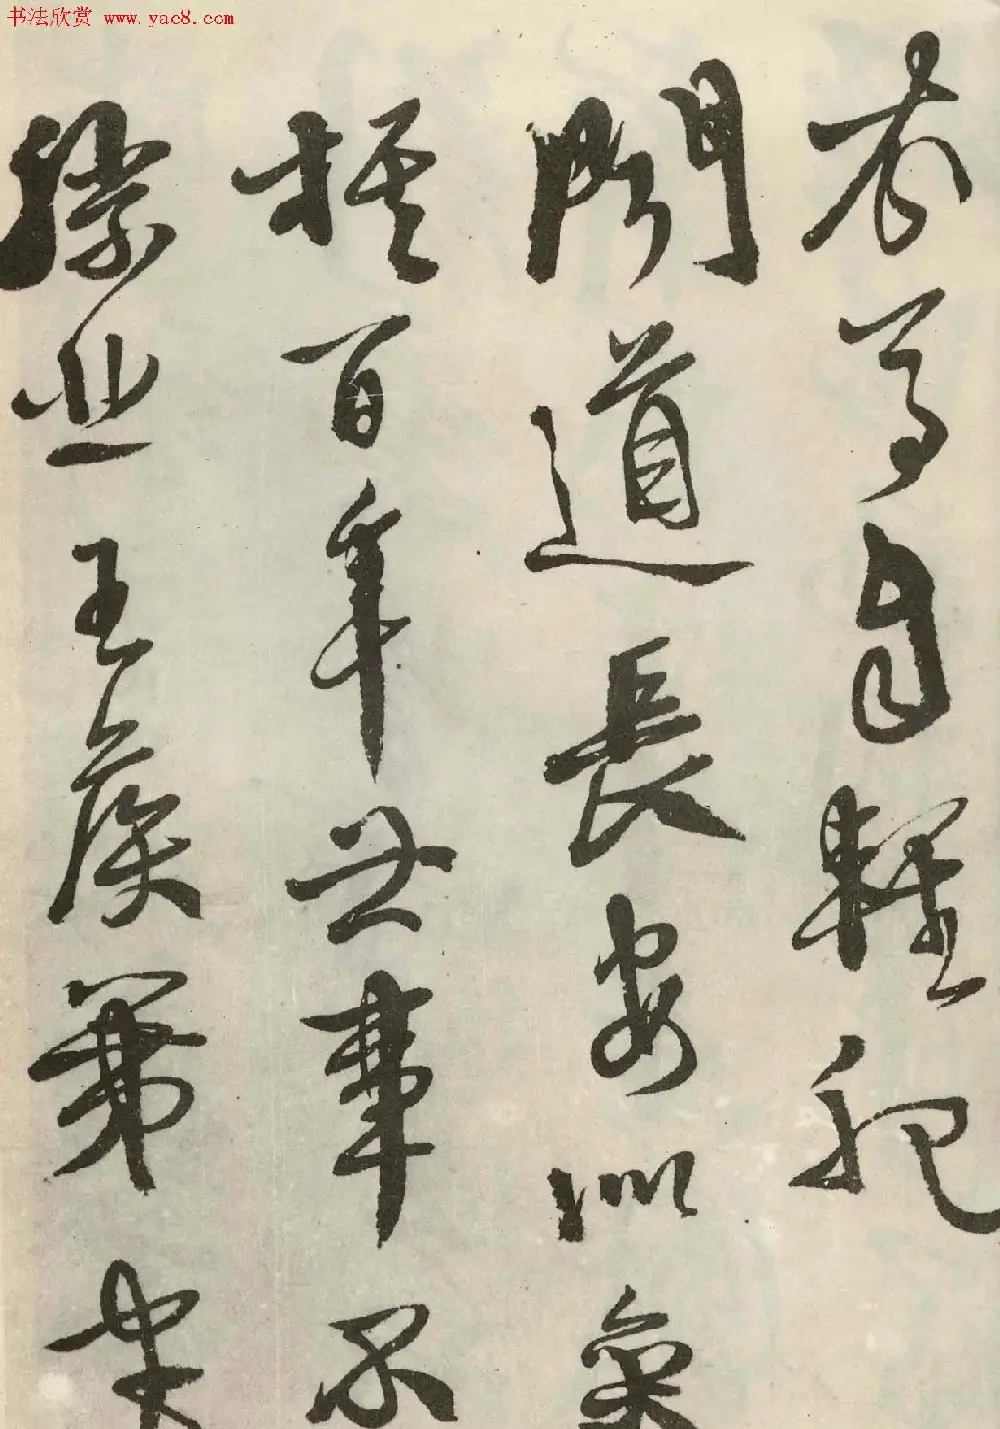 书法欣赏 www.yac8.com
衣馬自輕肥
聞道長安似奕
棋百年世事不
勝悲王侯第